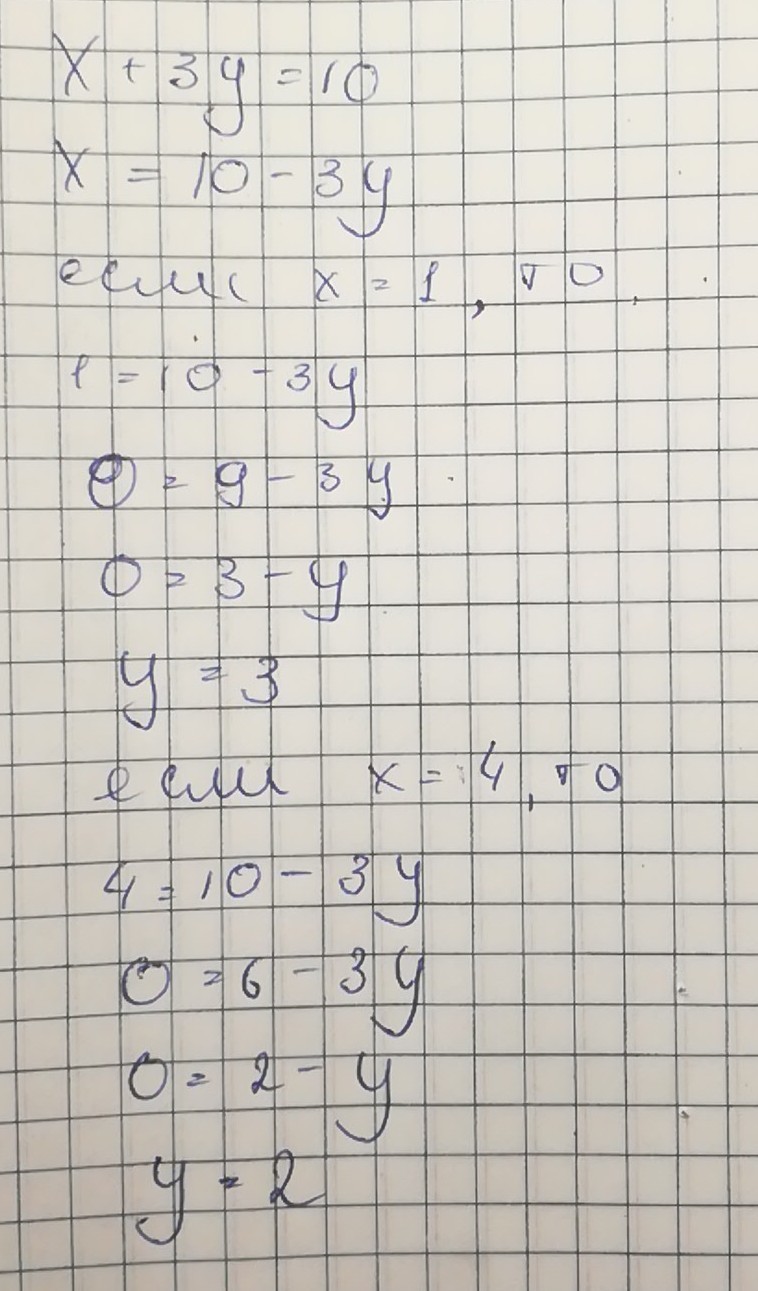 x + 3y = 10
x = 10 - 3y
если x = 1, то
1 = 10 - 3y
0 = 9 - 3y
0 = 3 - y
y = 3
если x = 4, то
4 = 10 - 3y
0 = 6 - 3y
0 = 2 - y
y = 2